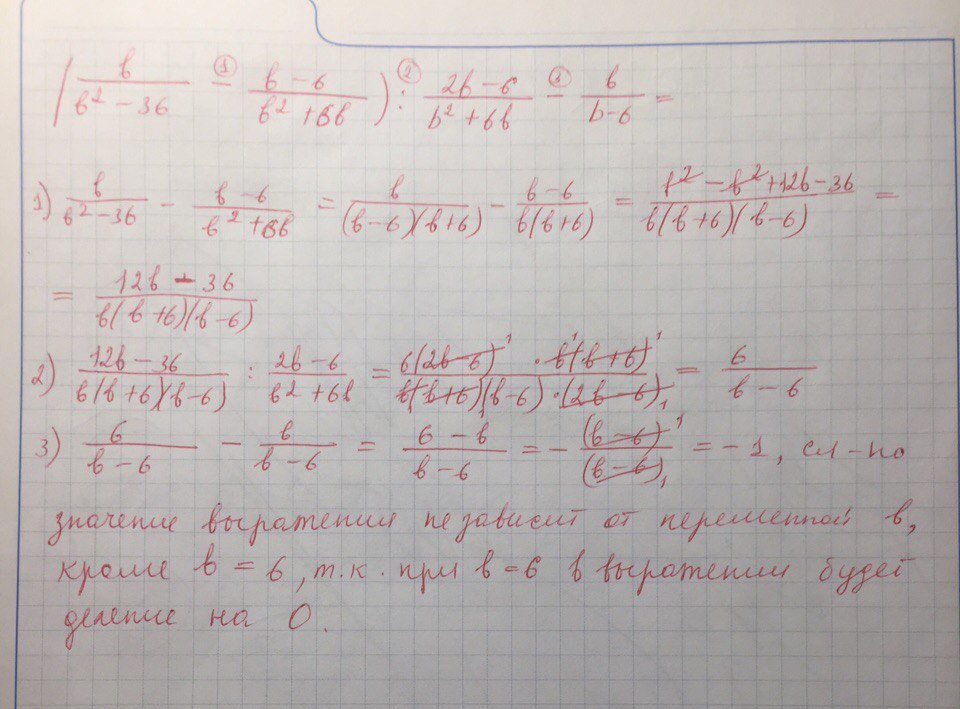 ( b/(b² − 36) −① (b − 6)/(b² + 6b) ) :② (2b − 6)/(b² + 6b) −① b/(b − 6) =
1) b/(b² − 36) − (b − 6)/(b² + 6b) = b/((b − 6)(b + 6)) − (b − 6)/(b(b + 6)) = (b² − b² + 12b − 36)/(b(b + 6)(b − 6)) =
= (12b − 36)/(b(b + 6)(b − 6))
2) (12b − 36)/(b(b + 6)(b − 6)) : (2b − 6)/(b² + 6b) = (6(2b − 6) · b(b + 6))/(b(b + 6)(b − 6) · (2b − 6)) = 6/(b − 6)
3) 6/(b − 6) − b/(b − 6) = (6 − b)/(b − 6) = − (b − 6)/(b − 6) = −1, сл-но
значение выражения не зависит от переменной b,
кроме b = 6, т.к. при b = 6 в выражении будет
деление на 0.